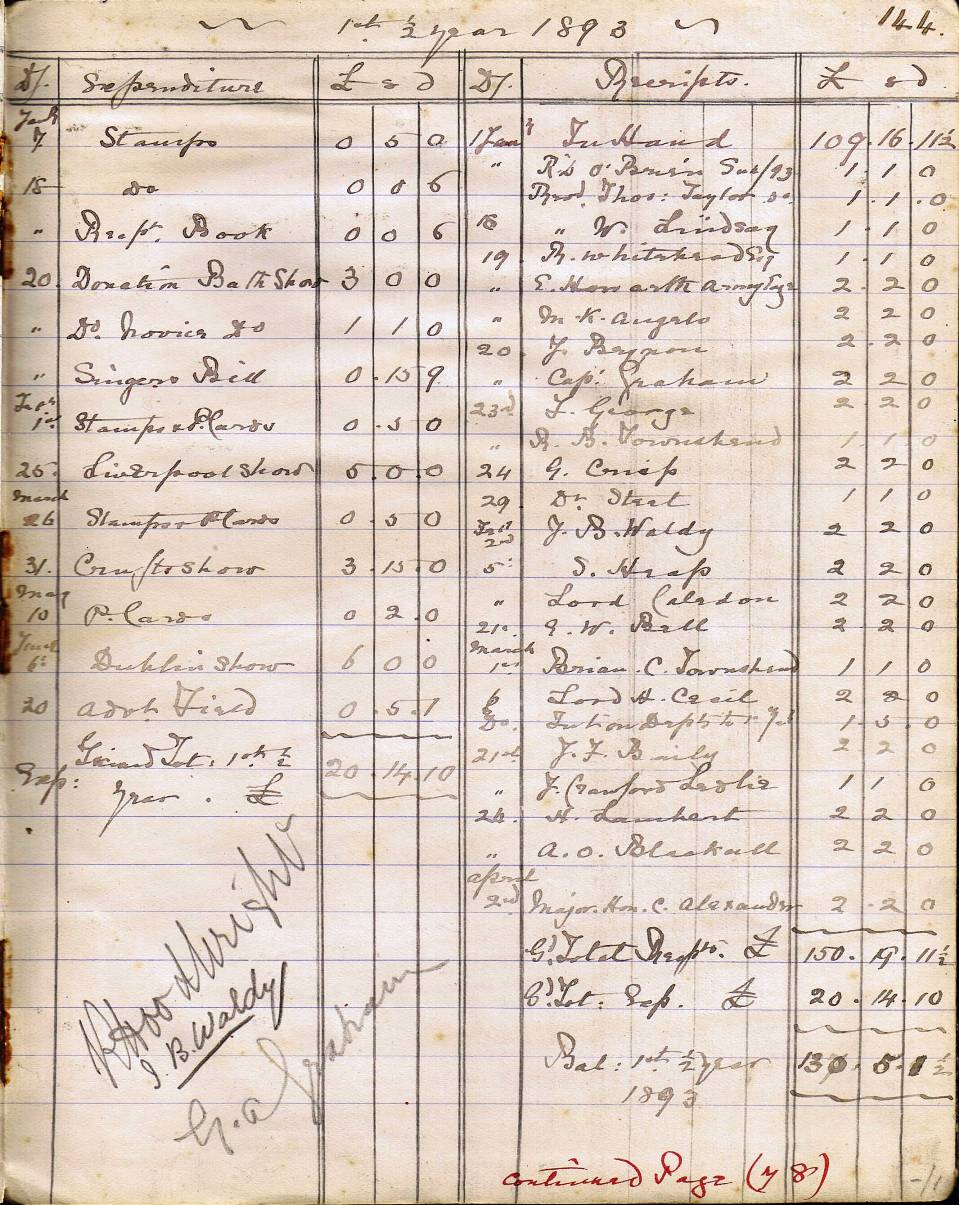 1st ½ year 1893
144.
D/. Expenditure £ s d
Jany 7 Stamps 0 5 0
18 do 0 0 6
" Recpt. Book 0 0 6
20. Donation Bath Show 3 0 0
" Do. Novice Do 1 1 0
" Singers Bill 0 . 15 9
Feby 1st Stamps & P. Cards 0 . 5 0
25. Liverpool Show 5 . 0 . 0
March 26 Stamps & P Cards 0 . 5 0
31. Crufts Show 3 . 15 . 0
May 10 P. Cards 0 2 . 0
June 6th Dublin Show 6 0 0
20 Advt. Field 0 . 5 . 1
Exp: Grand Tot: 1st ½ year . £ 20 . 14 . 10
R Hood Wright
J. B. Waldy
G. A Graham
D/. Receipts. £ s d
1 Jany In Hand 109 . 16 . 11½
" Rd. O'Brien Sub/93 1 . 1 0
Thos: Taylor do. 1 . 1 . 0
18 " W. Lindsay 1 . 1 0
19. R. Whitehead Esq 1 . 1 0
" E. Howarth Esqe 2 . 2 0
" M. K. Angelo 2 2 0
20. J. Beynon 2 . 2 0
" Capt. Graham 2 2 0
23rd F. George 2 2 0
" R. B. Townshend 1 . 1 . 0
24 G. Crisp 2 2 0
29. Dr. Steet 1 1 0
Feby 2nd J. B. Waldy 2 2 0
5th S. Heap 2 2 0
" Lord Caledon 2 2 0
21st. E. W. Bell 2 . 2 0
March 1st Brian . C. Townshend 1 1 0
6 Lord H. Cecil 2 2 0
Do. 1 . 5 . 0
21st J. F. Baily 2 2 0
" J. Crawford Leslie 1 1 0
24. H. Lambert 2 2 0
" A. O. Blackall 2 2 0
April 2nd Major. Hon. C. Alexander 2 . 2 0
Gd. Total Recpts. £ 150 . 19 . 11½
Gd. Tot: Exp. £ 20 . 14 . 10
Bal: 1st ½ year 1893 130 . 5 . 1½
continued Page (78)
-/1